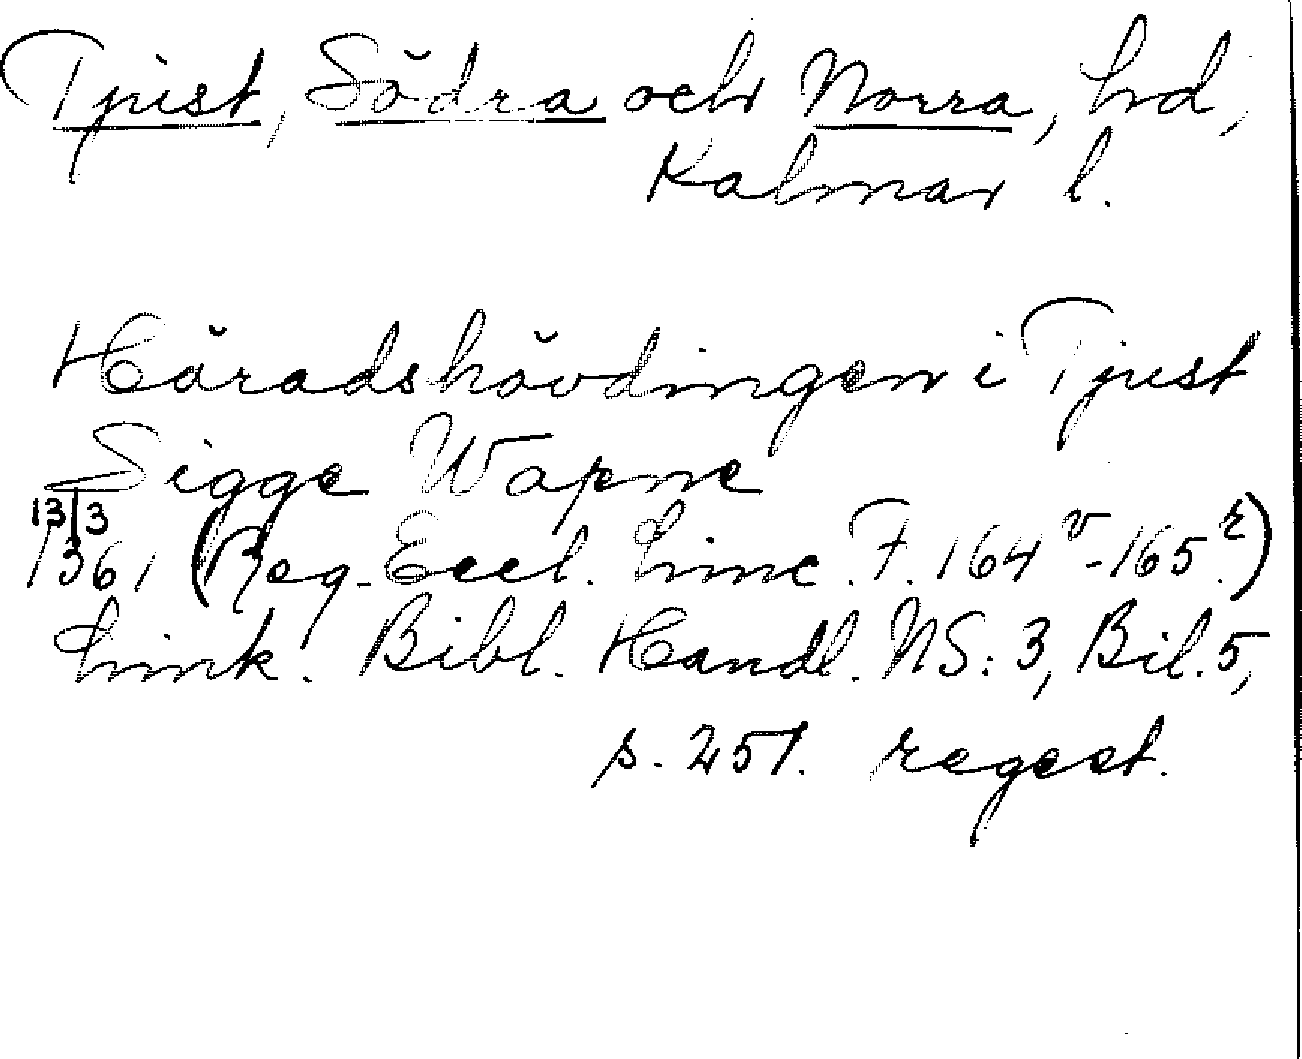 Tjust, Södra och Norra, hd,
Kalmar l.
Häradshövdingen i Tjust
Sigge Wapne
13/3
1361 (Reg. Eccl. Linc. F. 164v-165r)
Link. Bibl. Handl. NS: 3, Bil. 5,
s. 251. regest.